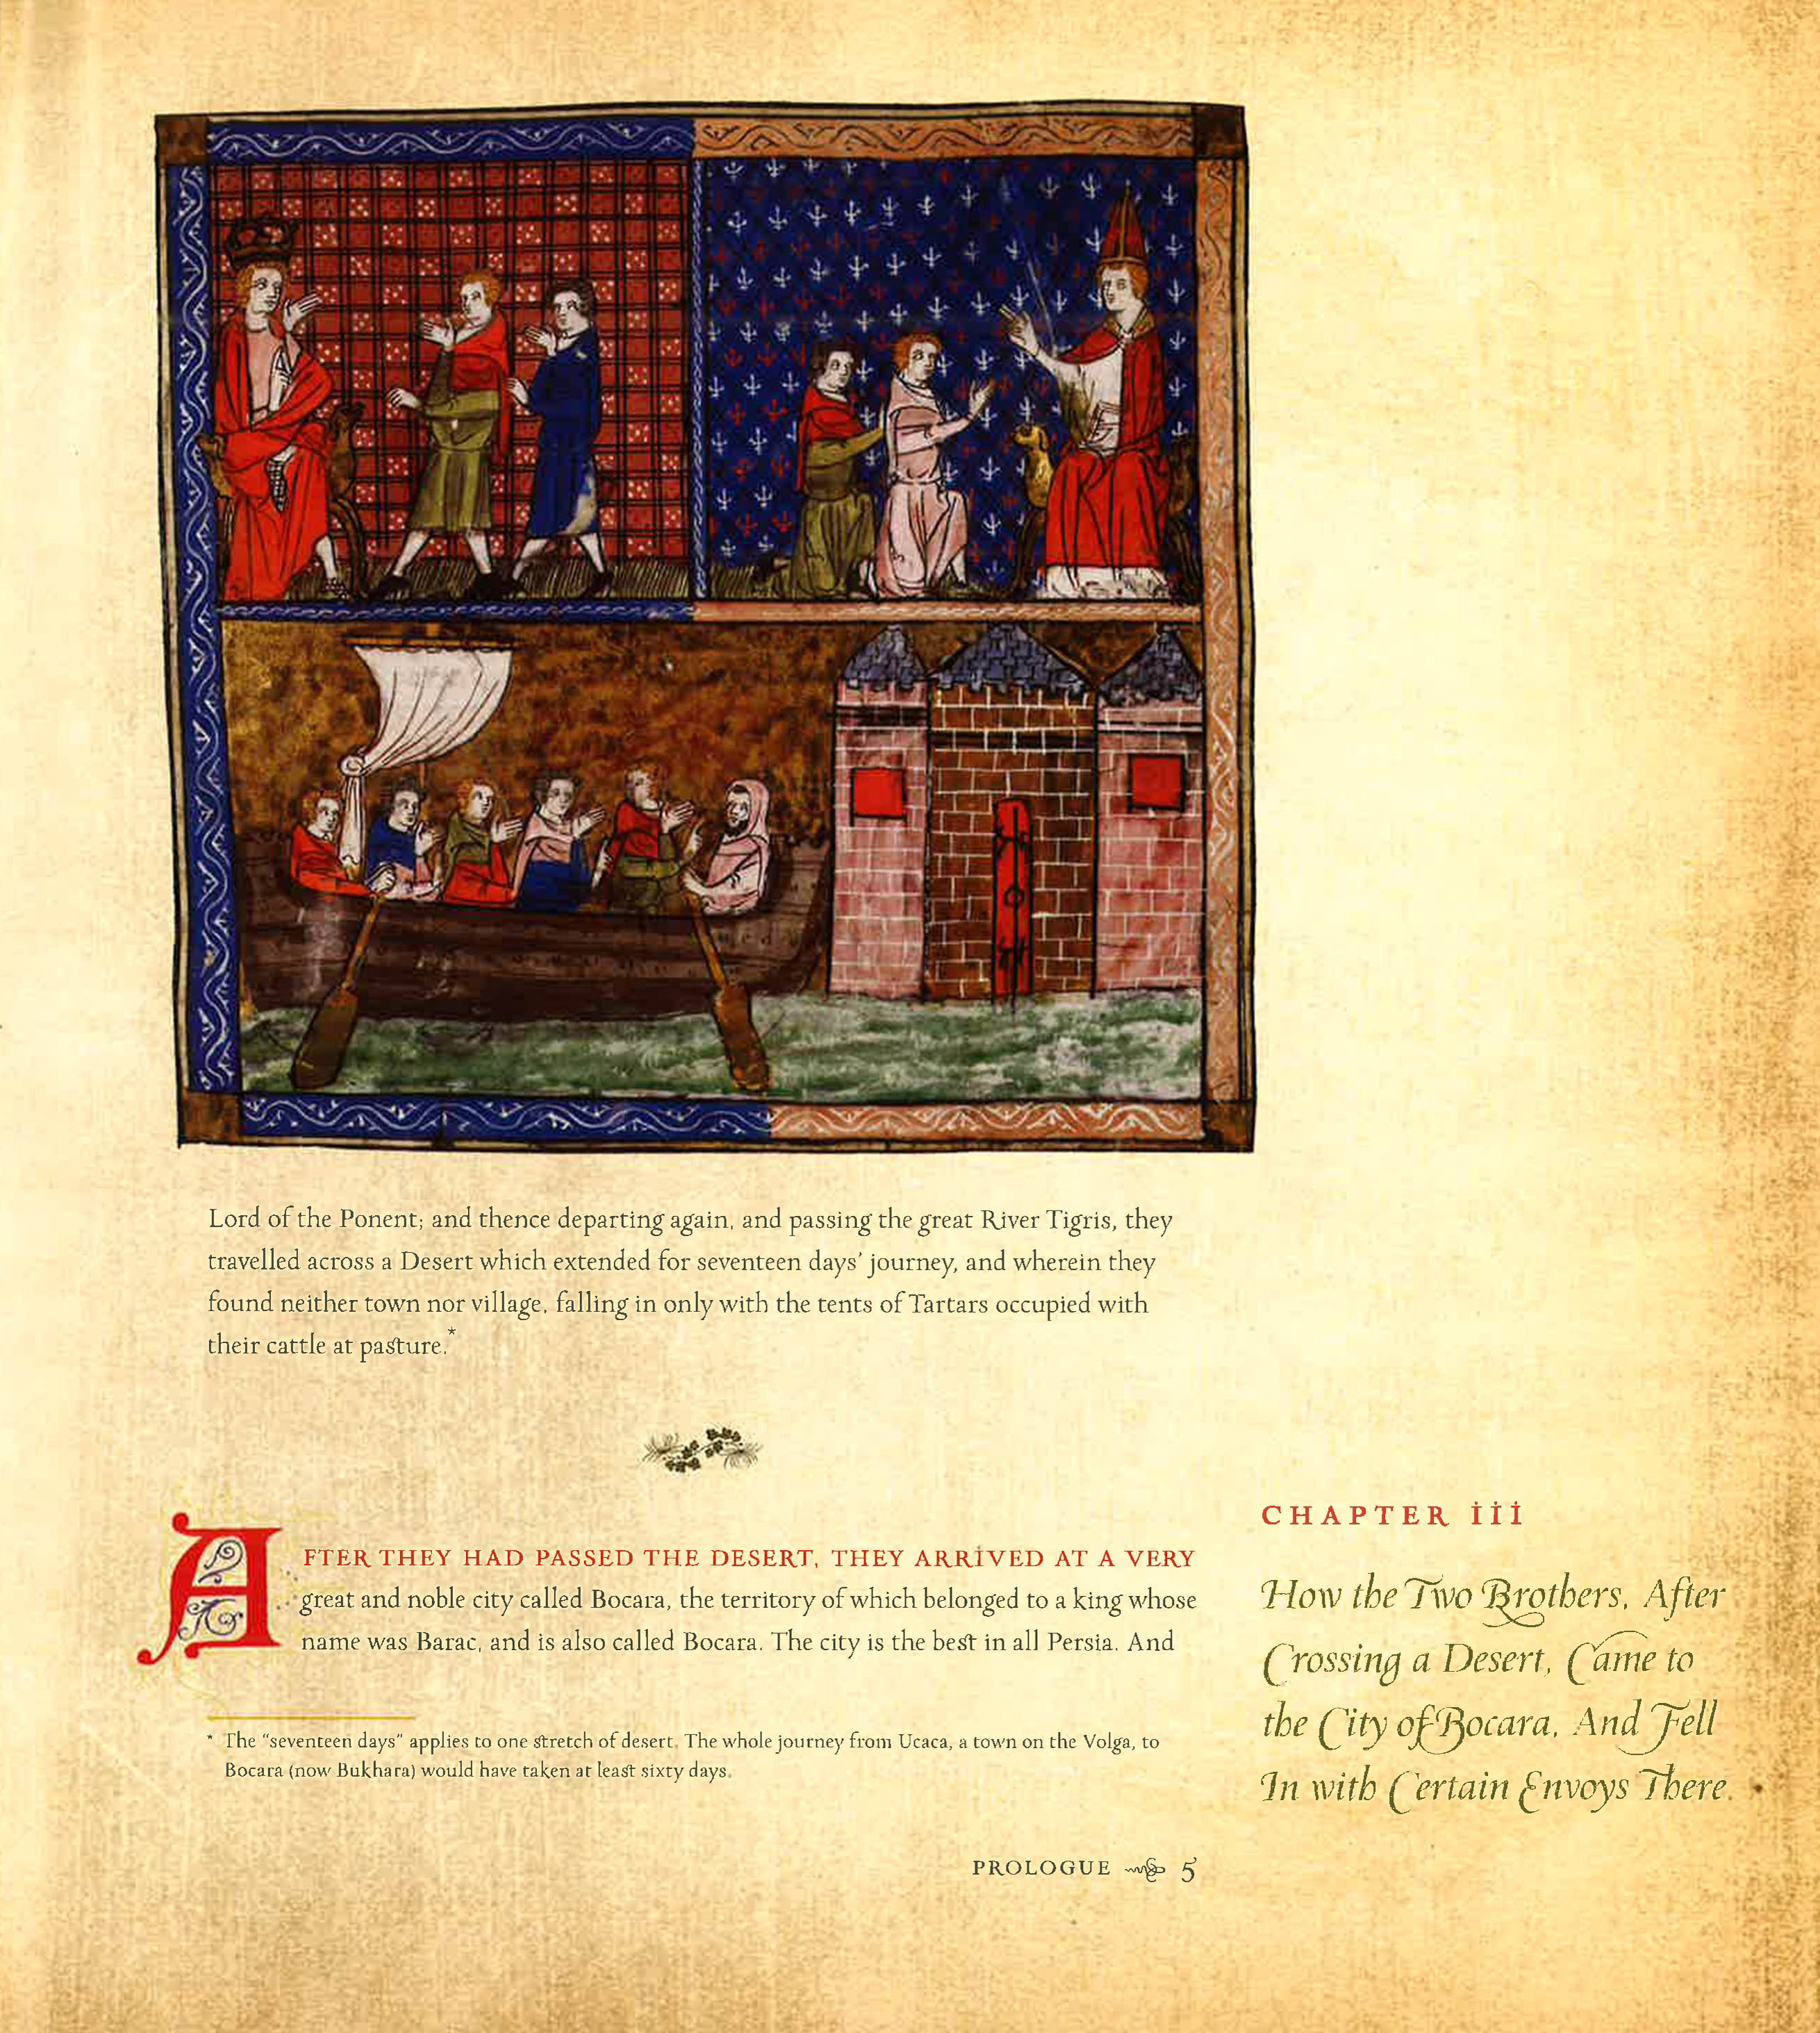 Lord of the Ponent; and thence departing again, and passing the great River Tigris, they
travelled across a Desert which extended for seventeen days' journey, and wherein they
found neither town nor village, falling in only with the tents of Tartars occupied with
their cattle at pasture.*
AFTER THEY HAD PASSED THE DESERT, THEY ARRIVED AT A VERY
great and noble city called Bocara, the territory of which belonged to a king whose
name was Barac, and is also called Bocara. The city is the best in all Persia. And
* The "seventeen days" applies to one stretch of desert. The whole journey from Ucaca, a town on the Volga, to
Bocara (now Bukhara) would have taken at least sixty days.
CHAPTER iii
How the Two Brothers, After
Crossing a Desert, Came to
the City of Bocara, And Fell
In with Certain Envoys There.
PROLOGUE 5